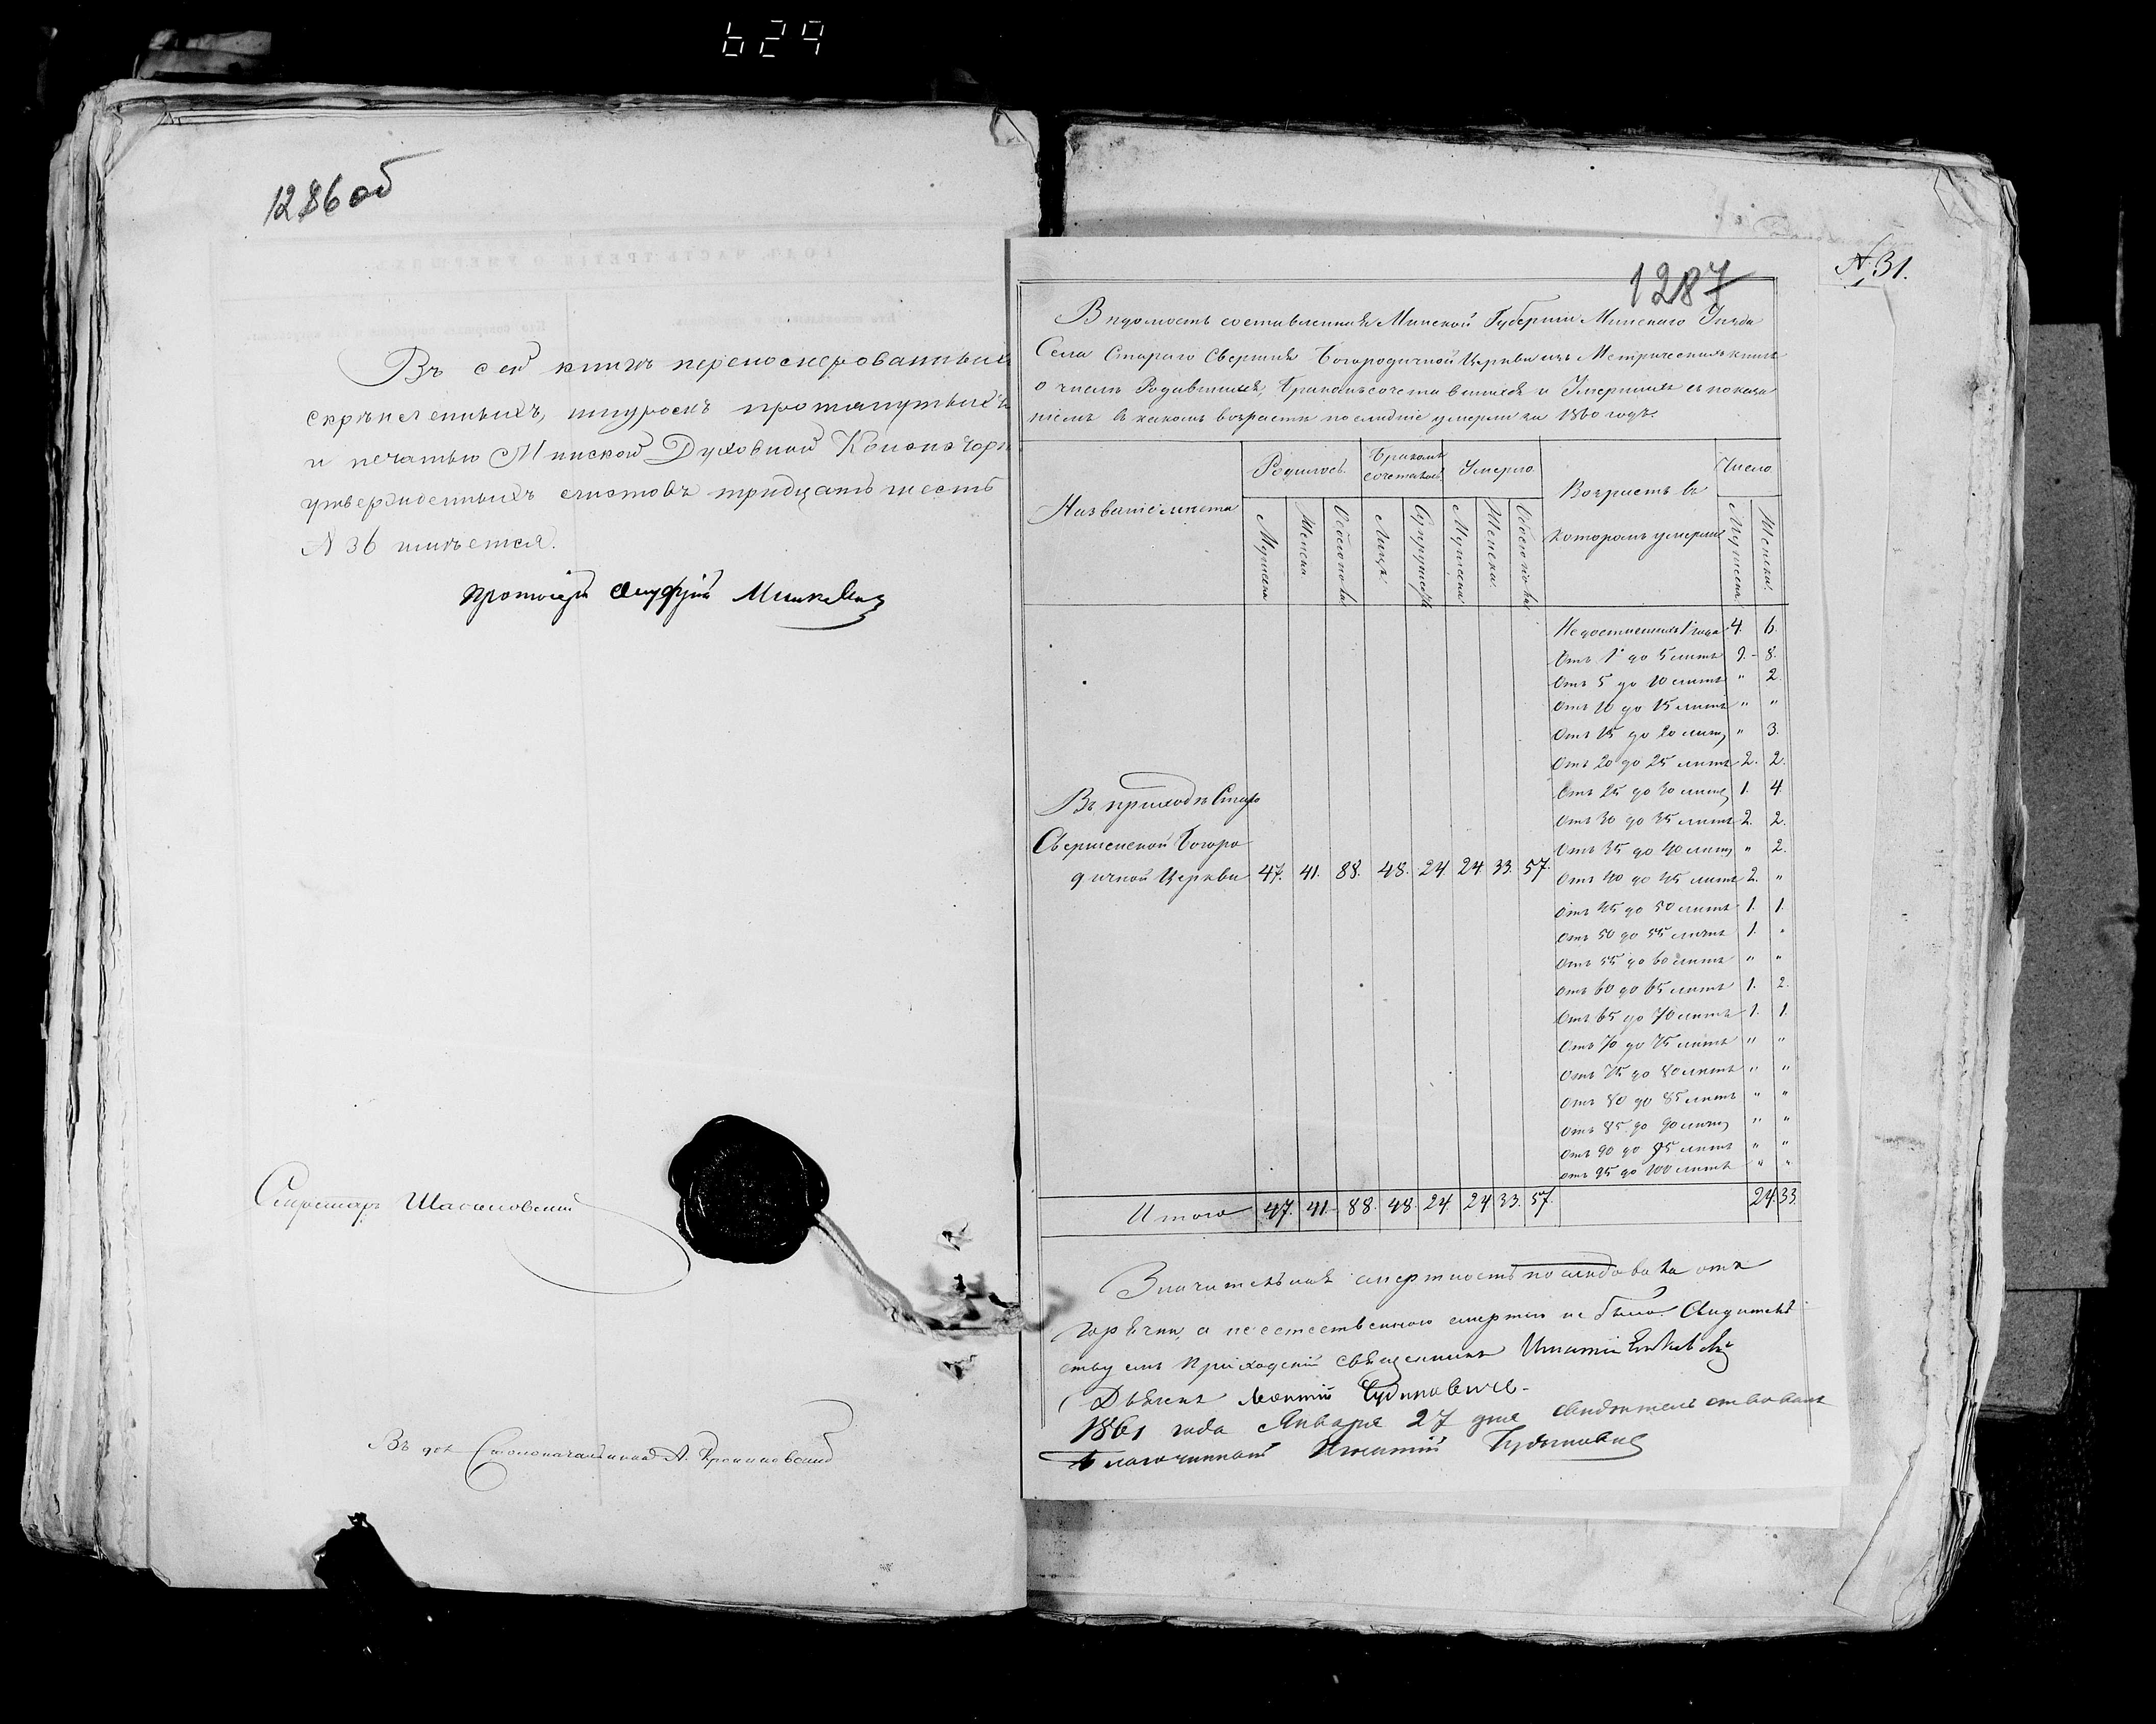 629
1286 об
Въ сей книгѣ перенумерованныхъ
скрѣпленныхъ, шнуромъ протянутыхъ
и печатью Минской Духовной Консистории
утвержденныхъ листовъ тридцать шесть
№ 36 имѣется.
Протоіерей Ануфрій
Секретарь
Въ дол. Столоначальника А.
№ 31.
1287
Вѣдомость составленная Минской Губерніи Минскаго Уѣзда
Села Стараго Свержня Богородичной Церкви изъ Метрическихъ книгъ
о числѣ Родившихся, бракомъ сочетавшихся и Умершихъ съ показа
ніемъ въ какомъ возрастѣ послѣдніе умерли за 1860 годъ.
Названіе мѣста
Родилось.
Бракомъ сочеталось.
Умерло.
Возрастъ въ которомъ умерли
Число
Мужеска Женска Обоего пола Лицъ. Супружествъ Мужеска Женска. Обоего пола Мужеска. Женска.
Недостигшихъ 1 года 4. 6.
Отъ 1 до 5 лѣтъ 9. 8.
Отъ 5 до 10 лѣтъ " 2.
Отъ 10 до 15 лѣтъ " "
Отъ 15 до 20 лѣтъ " 3.
Отъ 20 до 25 лѣтъ 2. 2.
Отъ 25 до 30 лѣтъ 1. 4.
Отъ 30 до 35 лѣтъ 2. 2.
Отъ 35 до 40 лѣтъ " 2.
Отъ 40 до 45 лѣтъ 2. "
Отъ 45 до 50 лѣтъ 1. 1.
Отъ 50 до 55 лѣтъ 1. "
Отъ 55 до 60 лѣтъ " "
Отъ 60 до 65 лѣтъ 1. 2.
Отъ 65 до 70 лѣтъ 1. 1.
Отъ 70 до 75 лѣтъ " "
Отъ 75 до 80 лѣтъ " "
Отъ 80 до 85 лѣтъ " "
Отъ 85 до 90 лѣтъ " "
Отъ 90 до 95 лѣтъ " "
Отъ 95 до 100 лѣтъ " "
Въ приходѣ Старо
Сверженской Богоро
дичной Церкви 47. 41. 88. 48. 24. 24. 33. 57.
Итого 47. 41. 88. 48. 24. 24. 33. 57. 24. 33.
Значительная смертность послѣдовала отъ
горячки, а неестественной смерти не было. Свидѣтель
ствуемъ Приходскій священникъ Игнатій
Дьячекъ Леонтій
1861 года Января 27 дня свидѣтельствовалъ
Благочинный Игнатій